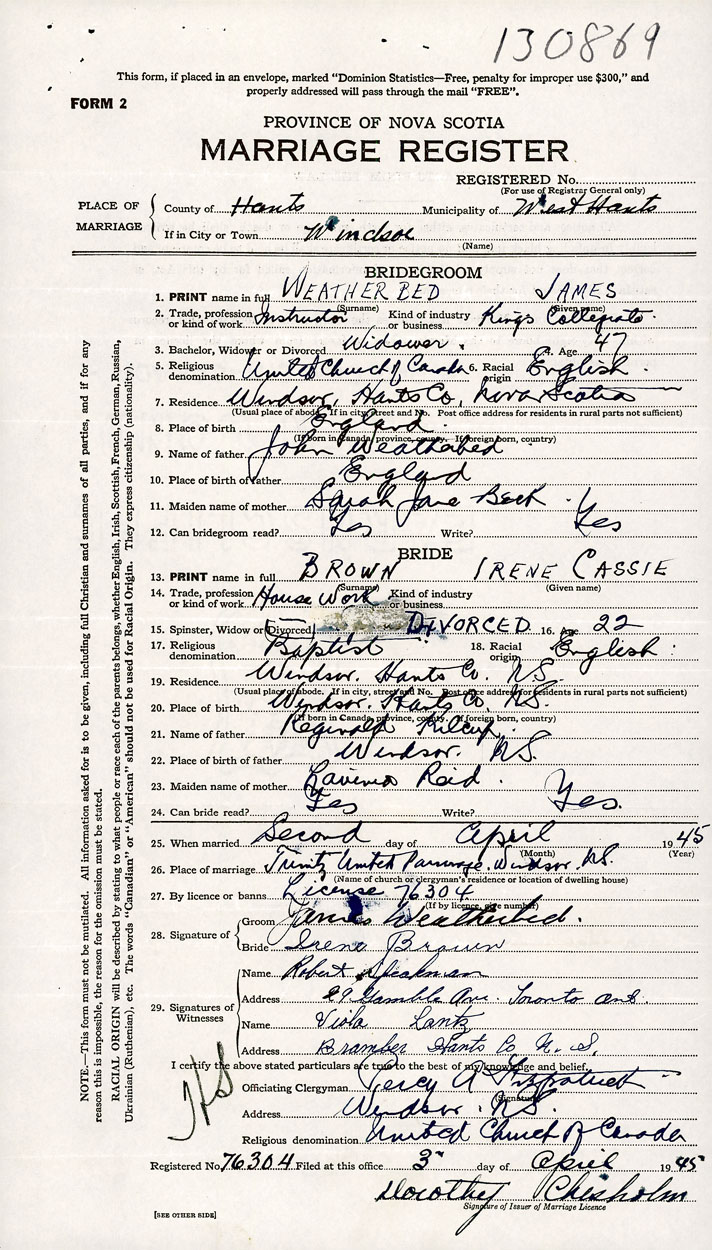 130869
This form, if placed in an envelope, marked "Dominion Statistics—Free, penalty for improper use $300," and
properly addressed will pass through the mail "FREE".
FORM 2
PROVINCE OF NOVA SCOTIA
MARRIAGE REGISTER
REGISTERED No.
(For use of Registrar General only)
PLACE OF MARRIAGE
County of Hants Municipality of West Hants
If in City or Town Windsor
(Name)
BRIDEGROOM
1. PRINT name in full WEATHERBED JAMES
(Surname) (Given name)
2. Trade, profession or kind of work Instructor Kind of industry or business Kings Collegiate
3. Bachelor, Widower or Divorced Widower. 4. Age 47
5. Religious denomination United Church of Canada 6. Racial origin English.
7. Residence Windsor, Hants Co, Nova Scotia
(Usual place of abode. If in city, street and No. Post office address for residents in rural parts not sufficient)
8. Place of birth England.
(If born in Canada, province, county. If foreign born, country)
9. Name of father John Weatherbed
10. Place of birth of father England
11. Maiden name of mother Sarah Jane Beck.
12. Can bridegroom read? Yes Write? Yes
BRIDE
13. PRINT name in full BROWN IRENE CASSIE
(Surname) (Given name)
14. Trade, profession or kind of work House Work Kind of industry or business
15. Spinster, Widow or Divorced DIVORCED 16. Age 22
17. Religious denomination Baptist 18. Racial origin English.
19. Residence Windsor. Hants Co. N.S.
(Usual place of abode. If in city, street and No. Post office address for residents in rural parts not sufficient)
20. Place of birth Windsor. Hants Co. N.S.
(If born in Canada, province, county. If foreign born, country)
21. Name of father Reginald Kilcup.
22. Place of birth of father Windsor. N.S.
23. Maiden name of mother Lavinia Reid.
24. Can bride read? Yes Write? Yes.
25. When married Second day of April 1945
(Month) (Year)
26. Place of marriage Trinity United Parsonage, Windsor, N.S.
(Name of church or clergyman's residence or location of dwelling house)
27. By licence or banns License 76304
(If by licence, give number)
28. Signature of
Groom James Weatherbed.
Bride Irene Brown
29. Signatures of Witnesses
Name Robert Speakman
Address 29 Gamble Ave. Toronto Ont.
Name Viola Lantz
Address Bramber Hants Co N. S.
I certify the above stated particulars are true to the best of my knowledge and belief.
Officiating Clergyman Percy A Fitzpatrick
(Signature)
Address Windsor. N.S.
Religious denomination United Church of Canada
Registered No. 76304 Filed at this office 3rd day of April 1945
Dorothy Chisholm
Signature of Issuer of Marriage Licence
[SEE OTHER SIDE]
NOTE.—This form must not be mutilated. All information asked for is to be given, including full Christian and surnames of all parties, and if for any
reason this is impossible, the reason for the omission must be stated.
RACIAL ORIGIN will be described by stating to what people or race each of the parents belongs, whether English, Irish, Scottish, French, German, Russian,
Ukrainian (Ruthenian), etc. The words "Canadian" or "American" should not be used for Racial Origin. They express citizenship (nationality).